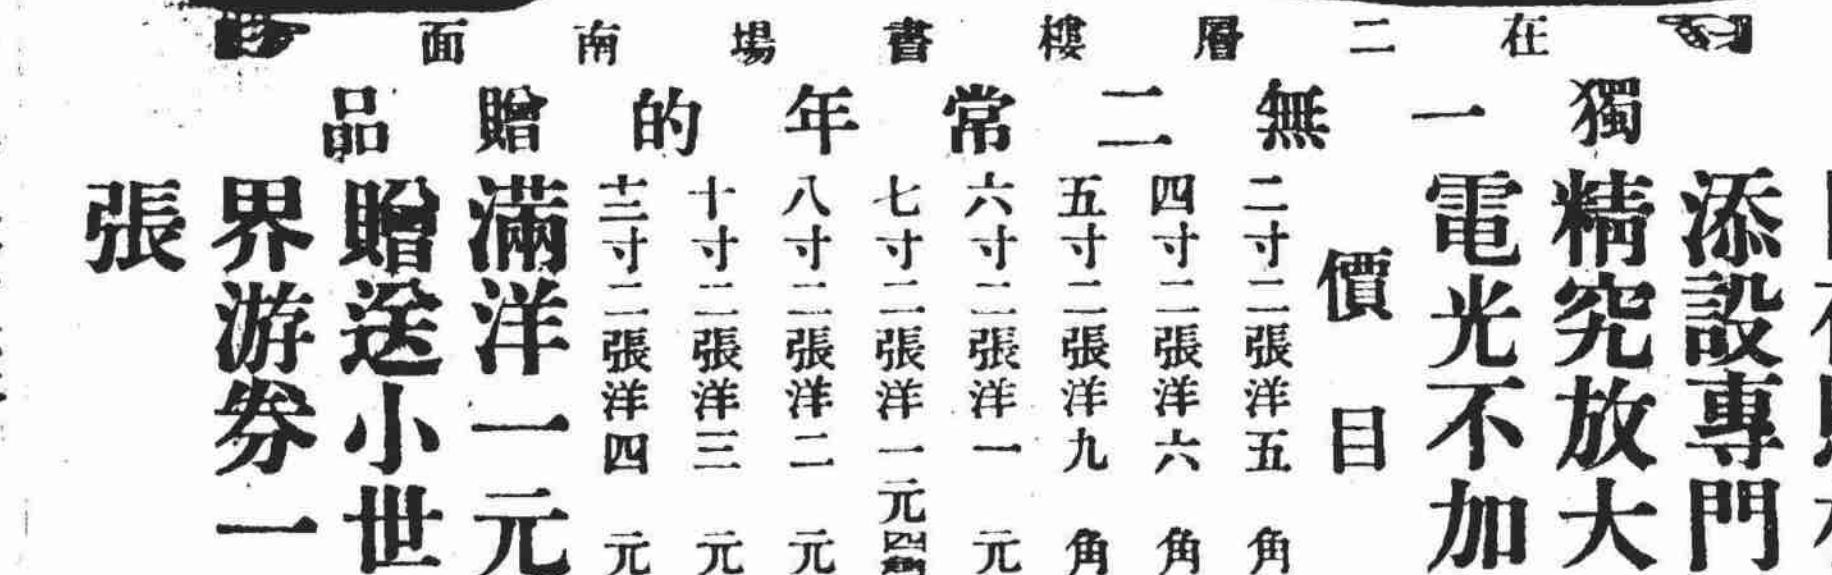 在二層樓書場南面
獨一無二常年的贈品
添設專門
精究放大
電光不加
價目
二寸二張洋五角
四寸二張洋六角
五寸二張洋九角
六寸二張洋一元
七寸二張洋一元四角
八寸二張洋二元
十寸二張洋三元
十二寸二張洋四元
滿洋一元
贈送小世
界游券一
張